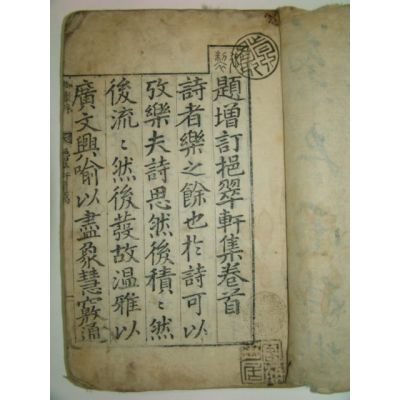 御製
題增訂挹翠軒集卷首
詩者樂之餘也於詩可以
攷樂夫詩思然後積積然
後流流然後發故温雅以
廣文興喻以盡象慧竅通